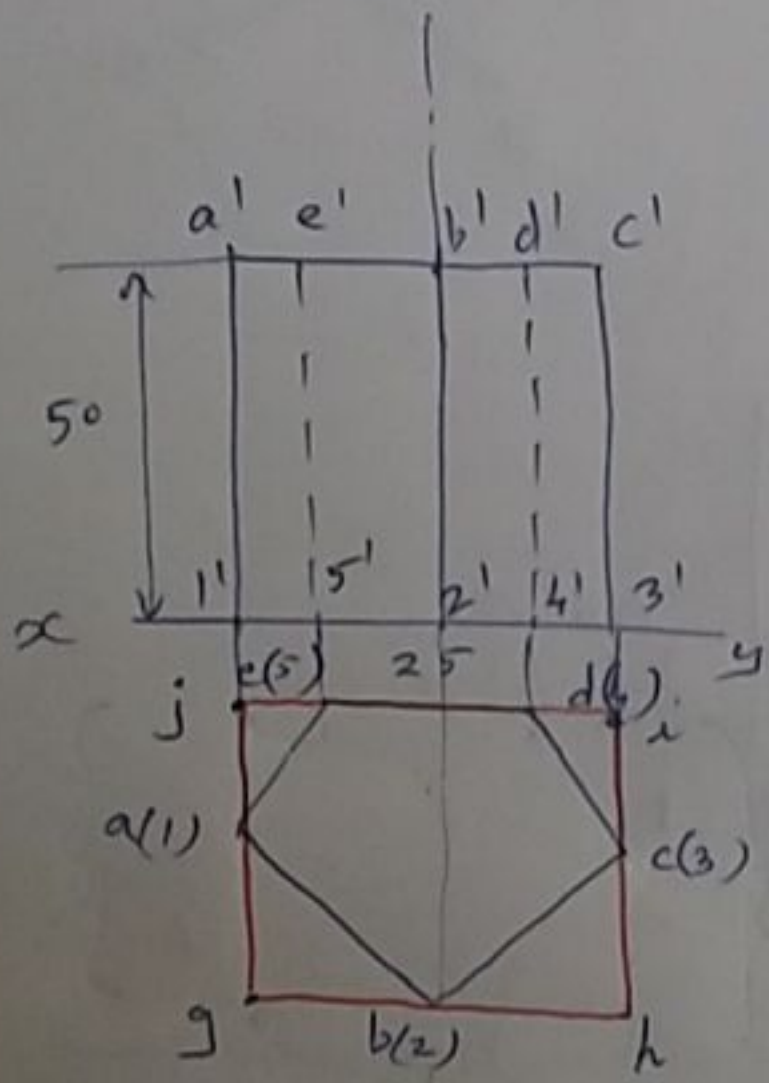 a' e' b' d' c'
50
1' 5' 2' 4' 3'
x y
e(5) 25 d(4)
j i
a(1) c(3)
g b(2) h